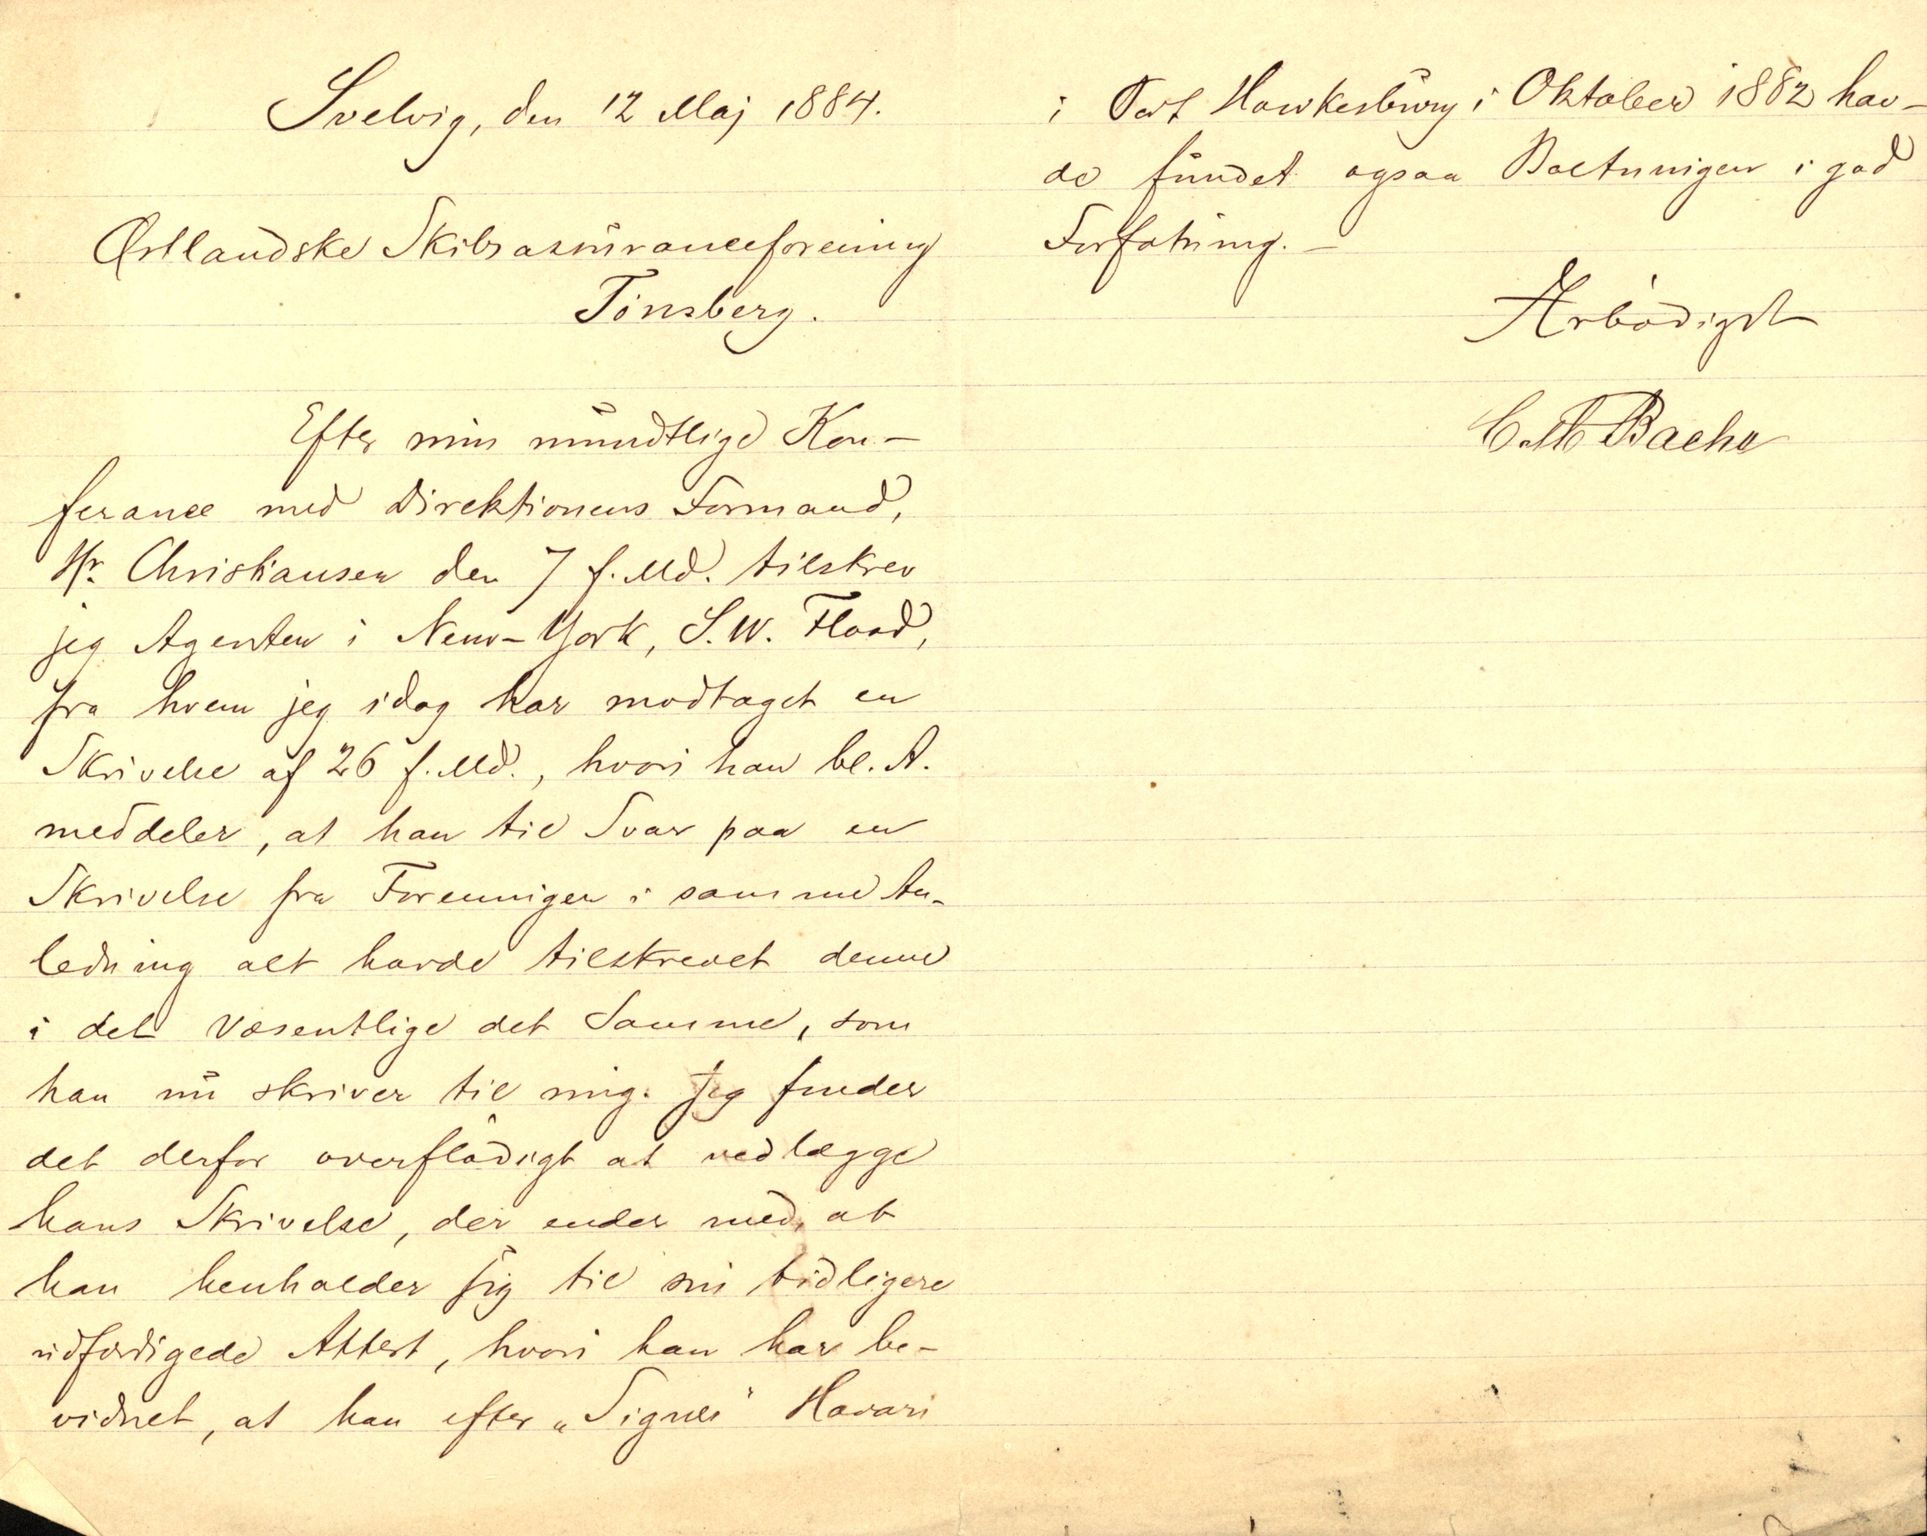 Svelvig, den 12 Maj 1884.
Østlandske Skibsassuranceforening
Tönsberg.
Efter min mundtlige Kon-
ferance med Direktionens Formand,
Hr. Christiansen den 7 f. Md. tilskrev
jeg Agenten i New-York, S. W. Flood,
fra hvem jeg idag har modtaget en
Skrivelse af 26 f. Md., hvori han bl. A.
meddeler, at han til Svar paa en
Skrivelse fra Foreningen i samme An-
ledning alt havde tilskrevet denne
i det væsentlige det Samme, som
han nu skriver til mig. Jeg finder
det derfor overflödigt at vedlægge
hans Skrivelse, der ender med, at
han henholder sig til sin tidligere
udfærdigede Attest, hvori han har be-
vidnet, at han efter „Signes" Havari
i Port Hawkesbury i Oktober 1882 hav-
de fundet ogsaa Bætningen i god
Forfatning. –
Ærbödigst
Bache